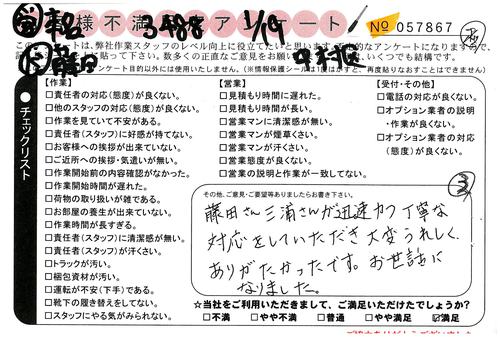 様 不 満 足 ア ン ケ ー ト
1/19
No 057867
藤田
中村
このアンケートは、弊社作業スタッフのレベル向上に役立てたいと思います。
アンケート目的以外には使用いたしません。(※情報保護シールは1度はがすと、再度貼りなおすことはできません)
チェックリスト
【作業】
□責任者の対応(態度)が良くない。
□他のスタッフの対応(態度)が良くない。
□作業を見ていて不安がある。
□責任者(スタッフ)に好感が持てない。
□お客様への挨拶が出来ていない。
□ご近所への挨拶・気遣いが無い。
□作業開始前の内容確認がなかった。
□作業開始時間が遅れた。
□荷物の取り扱いが雑である。
□お部屋の養生が出来ていない。
□作業時間が長すぎる。
□責任者(スタッフ)に清潔感が無い。
□責任者(スタッフ)が汗くさい。
□トラックが汚い。
□梱包資材が汚い。
□運転が不安(下手)である。
□靴下の履き替えをしてない。
□スタッフにやる気がみられない。
【営業】
□見積もり時間に遅れた。
□見積もり時間が長い。
□営業マンに清潔感が無い。
□営業マンが煙草くさい。
□営業マンが汗くさい。
□営業態度が良くない。
□営業の説明と作業が一致してない。
【受付・その他】
□電話の対応が良くない。
□オプション業者の説明
・作業が良くない。
□オプション業者の対応
(態度)が良くない。
その他、ご意見・ご要望等ありましたらお書き下さい。
藤田さん三浦さんが迅速かつ丁寧な
対応をしていただき大変うれしく、
ありがたかったです。お世話に
なりました。
☆当社をご利用いただきまして、ご満足いただけたでしょうか?
□不満 □やや不満 □普通 □やや満足 ☑満足